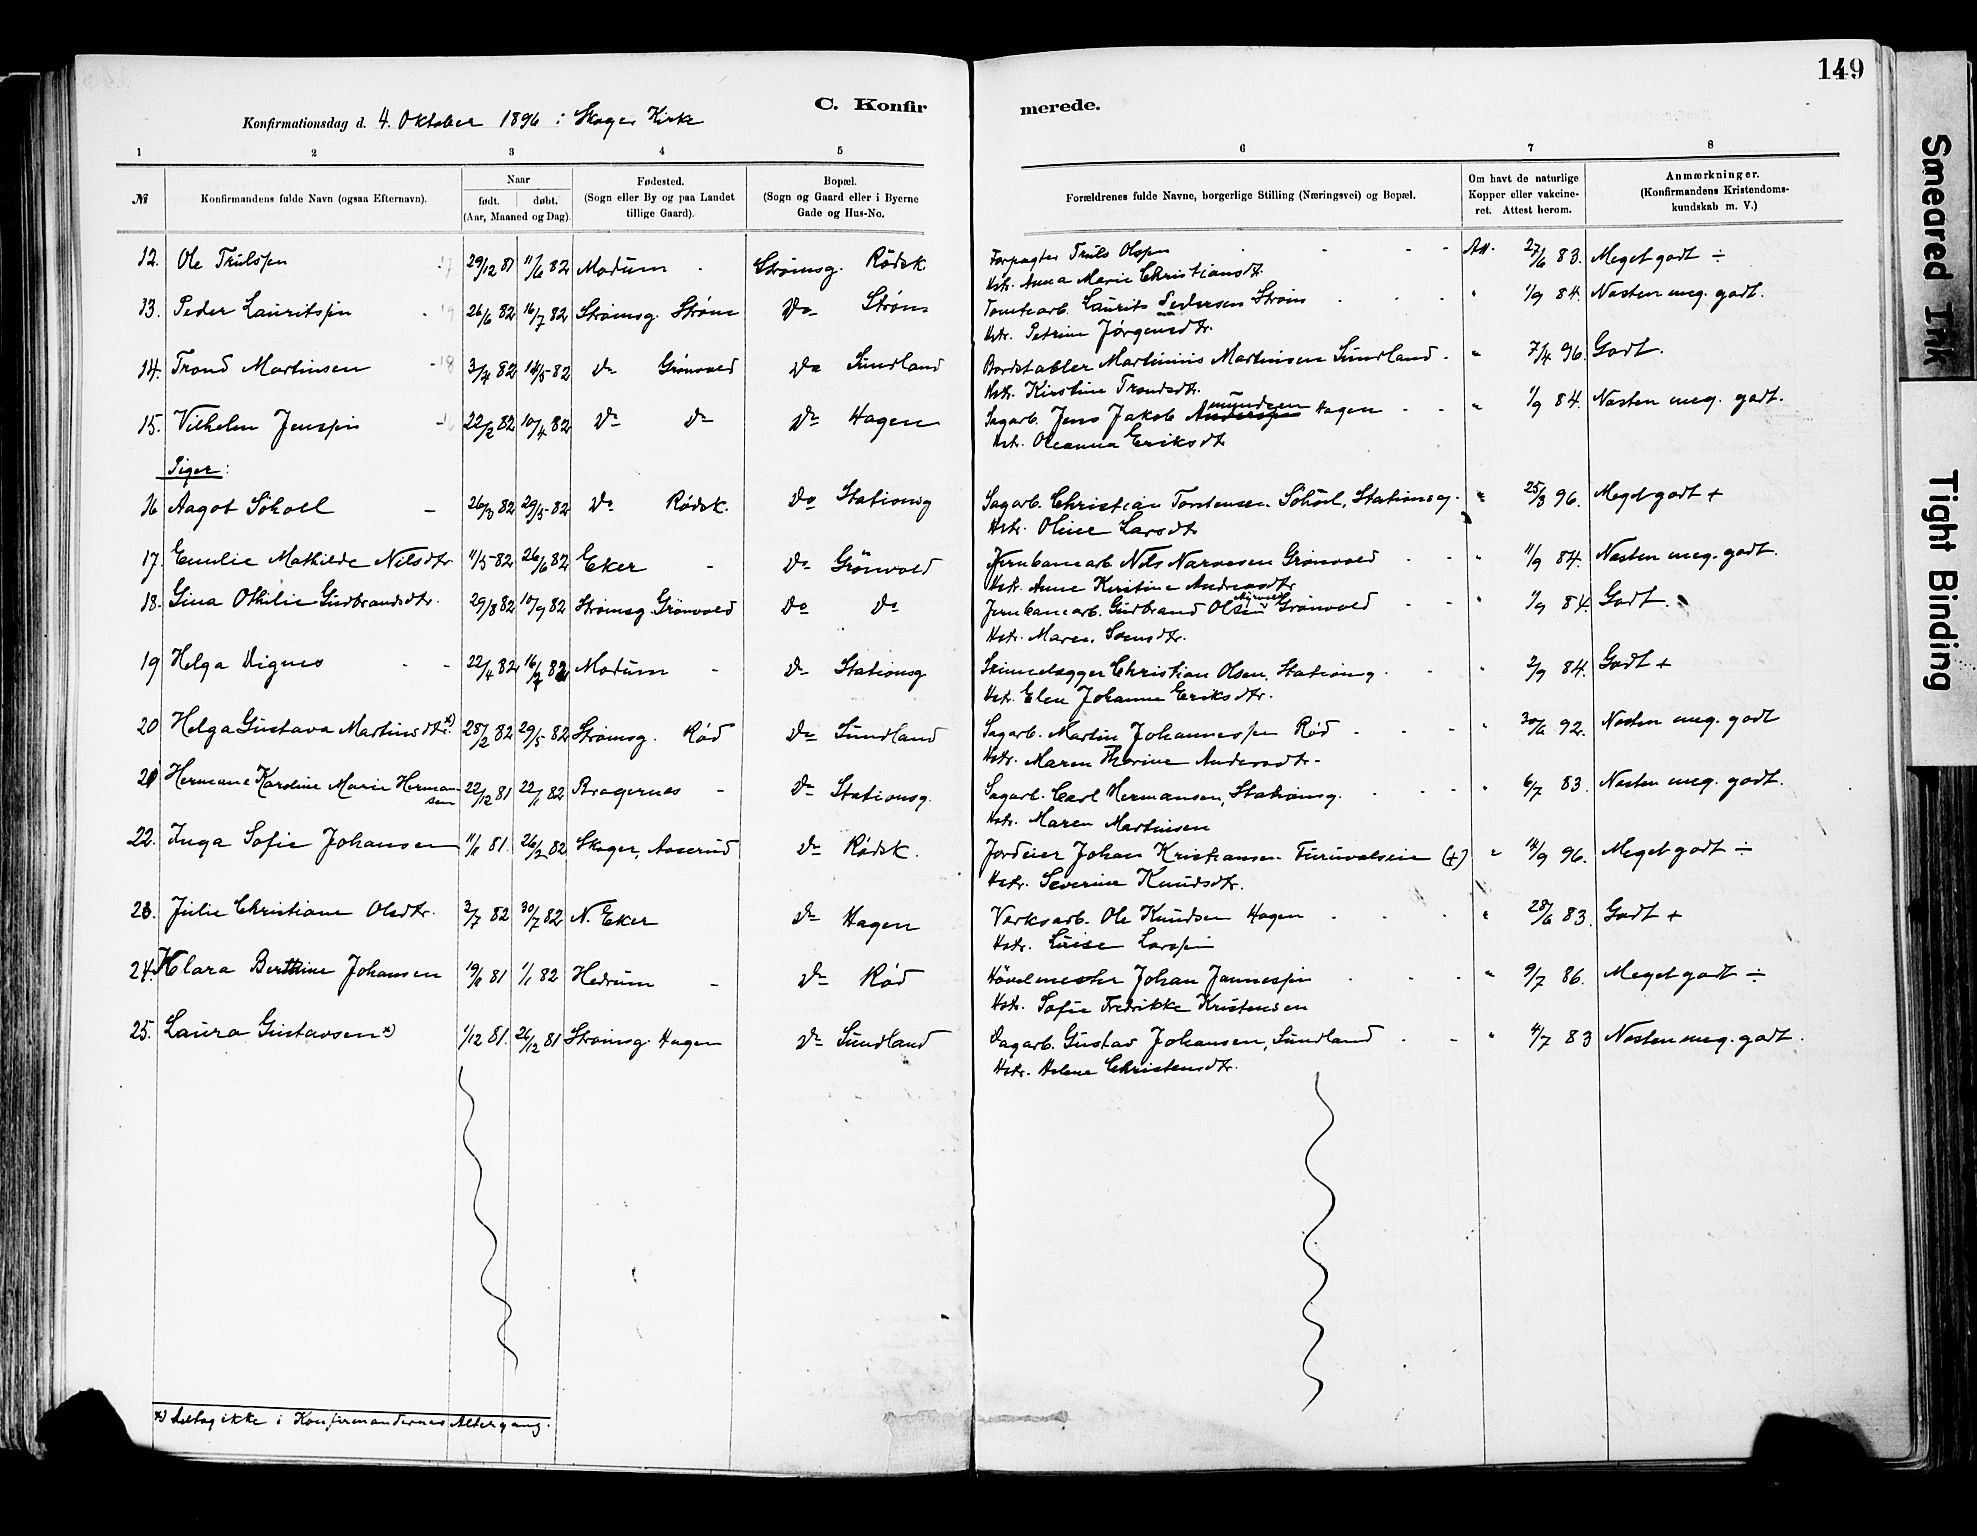 149
C. Konfirmerede.
Konfirmationsdag d. 4. Oktober 1896 i Skoger Kirke
1 2 3 4 5 6 7 8
№ Konfirmandens fulde Navn (ogsaa Efternavn). Naar født. døbt. (Aar, Maaned og Dag). Fødested. (Sogn eller By og paa Landet tillige Gaard). Bopæl. (Sogn og Gaard eller i Byerne Gade og Hus-No. Forældrenes fulde Navne, borgerlige Stilling (Næringsvei) og Bopæl. Om havt de naturlige Kopper eller vakcineret. Attest herom. Anmærkninger. (Konfirmandens Kristendomskundskab m. V.)
12. Ole Trulssen 29/12 81 11/6 82 Modum Strømsg. Rødsk Forpagter Truls Olssen Att. 27/6 83. Meget godt ÷
Hstr. Anna Marie Christiansdtr.
13. Peder Lauritssen 26/6 82 16/7 82 Strømsg. Strøm Do Strøm Tomtearb. Laurits Pedersen Strøm " 1/9 84. Næsten meg. godt.
Hstr. Petrine Jørgensdtr.
14. Trond Martinsen 3/4 82 14/5 82 Do Grønvold Do Sundland Bordstabler Martinius Martinsen Sundland " 7/4 96. Godt.
Hstr. Kirstine Trondsdtr.
15. Vilhelm Jenssen 22/2 82 10/4 82 Do Do Do Hagen Sagarb. Jens Jakob Anderssen mundsen Hagen " 1/9 84. Næsten meg. godt.
Hstr. Oleanna Eriksdtr.
Piger:
16 Aagot Sökoll 26/3 82 29/5 82 Do Rødsk. Do Stationsg Sagarb. Christian Torstensen Stationsg. " 25/3 96. Meget godt +
Hstr. Oline Larsdtr
17. Emilie Mathilde Nilsdtr 11/5 82 26/6 82 Eker Do Grönvold Jernbanearb Nils Narvesen Grønvold " 11/9 84. Næsten meg. godt.
Hstr. Anne Kirstine Andersdtr
18. Gina Othilie Gudbrandsdtr. 29/8 82 10/9 82 Strømsg Grønvold Do Do Jernbanearb. Gudbrand Olsen Grönvold " 1/9 84. Godt.
Hstr. Maren Svensdtr.
19 Helga Vignes 22/4 82 16/7 82 Modum Do Stationsg Skinnelægger Christian Olsen, Stationsg. " 2/9 84. Godt +
Hstr. Elen Johanne Eriksdtr.
20 Helga Gustava Martinsdtr. *) 28/2 82 29/5 82 Strømsg. Rød Do Sundland Sagarb. Martin Johannessen Rød " 30/6 92. Næsten meg. godt
Hstr. Maren Thorine Andersdtr.
21 Hermane Karoline Marie Hermansen 22/12 81 22/1 82 Bragernes Do Stationsg. Sagarb. Carl Hermansen, Stationsg. " 6/7 83. Næsten meg. godt.
Hstr. Maren Martinsen
22. Inga Sofie Johansen 81. 26/2 82 Skoger, Aaserud Do Rødsk. Jordeier Johan Kristiansen (+) " 14/9 96. Meget godt ÷
Hstr. Severine Knudsdtr.
23. Julie Christiane Olsdtr. 2/7 82 30/7 82 N. Eker Do Hagen Verksarb. Ole Knudsen Hagen " 28/6 83. Godt +
Hstr. Lovise Larssen
24. Klara Berthine Johansen 81 1/1 82 Hedrum Do Rød Hövelmester Johan Jannessen " 9/7 86. Meget godt ÷
Hstr. Sofie Fredrikke Kristensen
25. Laura Gustavsen *) 1/12 81. 26/12 81 Strømsg. Hagen Do Sundland Dagarb. Gustav Johansen, Sundland " 4/7 83 Næsten meg. godt.
Hstr. Helene Christensdtr.
*) Deltog ikke i Konfirmandernes Altergang.
Smeared Ink
Tight Binding